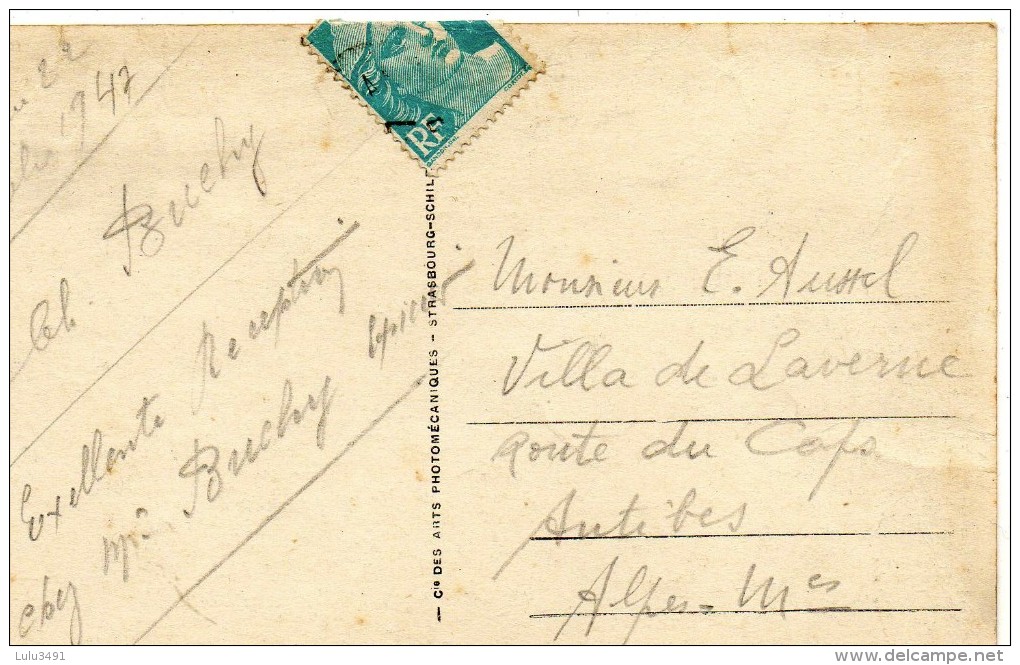 22
1947
Buchy
Excellente Reception
chez Mr Buchy épicier
RF
— Cie DES ARTS PHOTOMÉCANIQUES - STRASBOURG-SCHIL
Monsieur E. Aussel
Villa de Laverne
Route du Cap
Antibes
Alpes=Mes
Lulu3491
delcampe.net